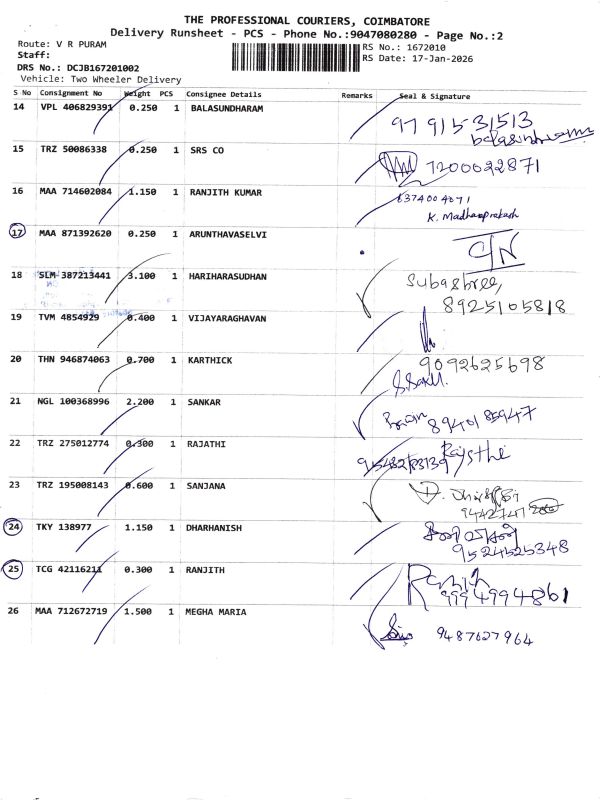 THE PROFESSIONAL COURIERS, COIMBATORE
Delivery Runsheet - PCS - Phone No.:9047080280 - Page No.:2
Route: V R PURAM
RS No.: 1672010
Staff:
RS Date: 17-Jan-2026
DRS No.: DCJB167201002
Vehicle: Two Wheeler Delivery
S No Consignment No Weight PCS Consignee Details Remarks Seal & Signature
14 VPL 406829391 0.250 1 BALASUNDHARAM
9791531513
balasundharam
15 TRZ 50086338 0.250 1 SRS CO
7200022871
16 MAA 714602084 1.150 1 RANJITH KUMAR
6374004071
K. Madhanprakash
17 MAA 871392620 0.250 1 ARUNTHAVASELVI
C/N
18 SLM 387213441 3.100 1 HARIHARASUDHAN
Subashree,
8925105818
19 TVM 4854929 0.400 1 VIJAYARAGHAVAN
20 THN 946874063 0.700 1 KARTHICK
9092625698
21 NGL 100368996 2.200 1 SANKAR
8940185947
22 TRZ 275012774 0.300 1 RAJATHI
Rajsthi
23 TRZ 195008143 0.600 1 SANJANA
24 TKY 138977 1.150 1 DHARHANISH
9524525348
25 TCG 42116211 0.300 1 RANJITH
Ranjith
9994994861
26 MAA 712672719 1.500 1 MEGHA MARIA
9487627964